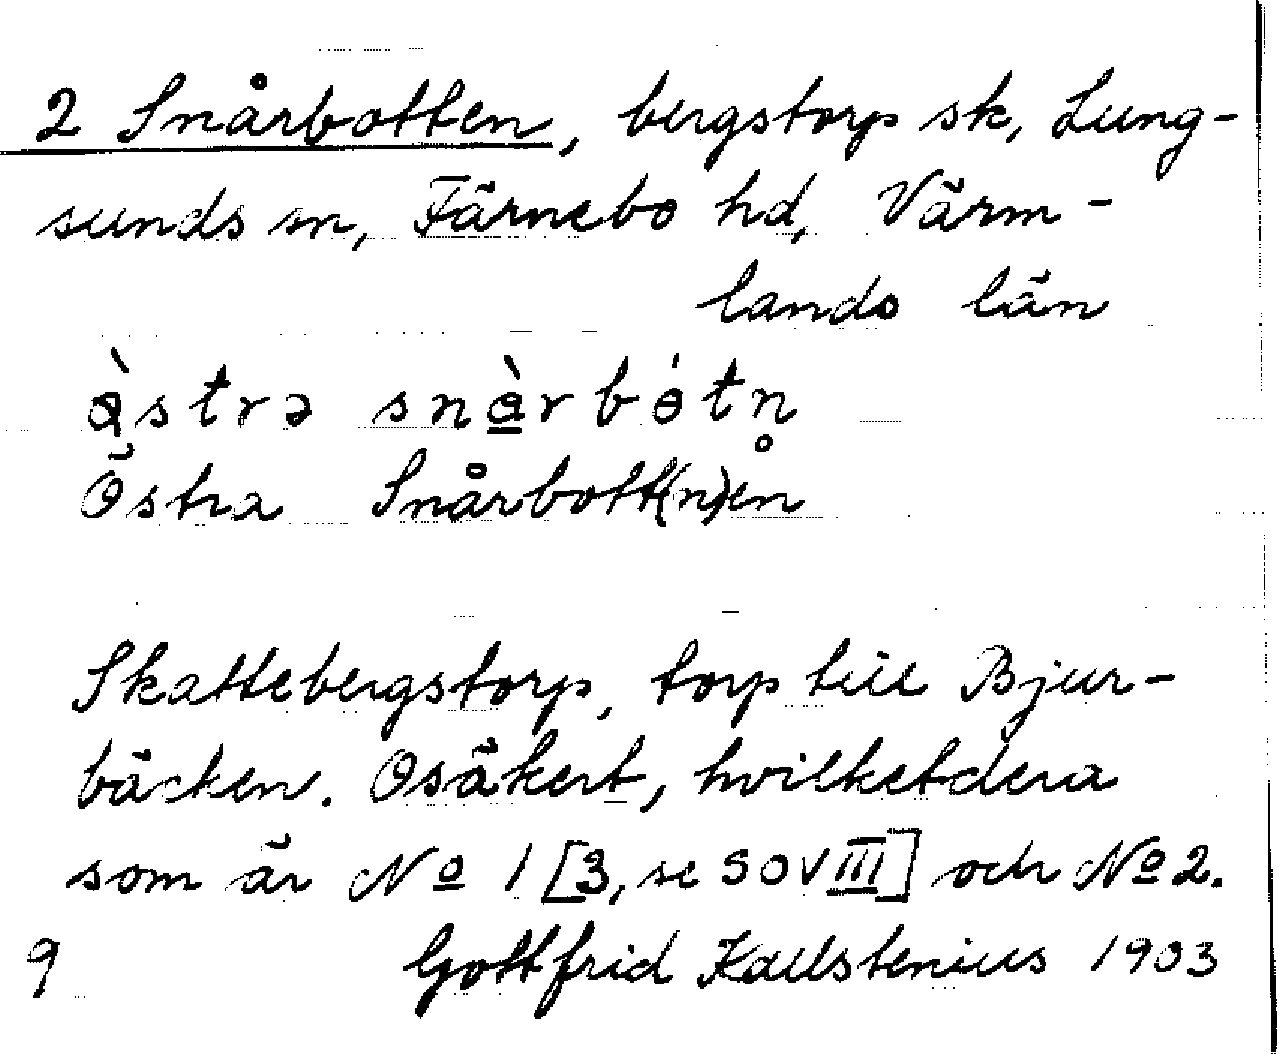 2 Snårbotten, bergstorp sk, Lung-
sunds sn, Färnebo hd, Värm-
lands län
Östra Snårbott(n)en
Skattebergstorp, torp till Bjur-
bäcken. Osäkert, hvilketdera
som är No 1 [3, se SOV III] och No 2.
9 Gottfrid Kallstenius 1903